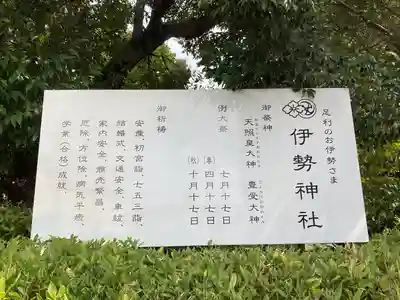 足利のお伊勢さま
伊勢神社
御祭神
天照皇大神 豊受大神
例大祭
七月十七日
(春) 四月十七日
(秋) 十月十七日
御祈祷
安産、初宮詣、七五三詣、
結婚式、交通安全、車祓、
家内安全、商売繁昌、
厄除、方位除、病気平癒、
学業(合格)成就、